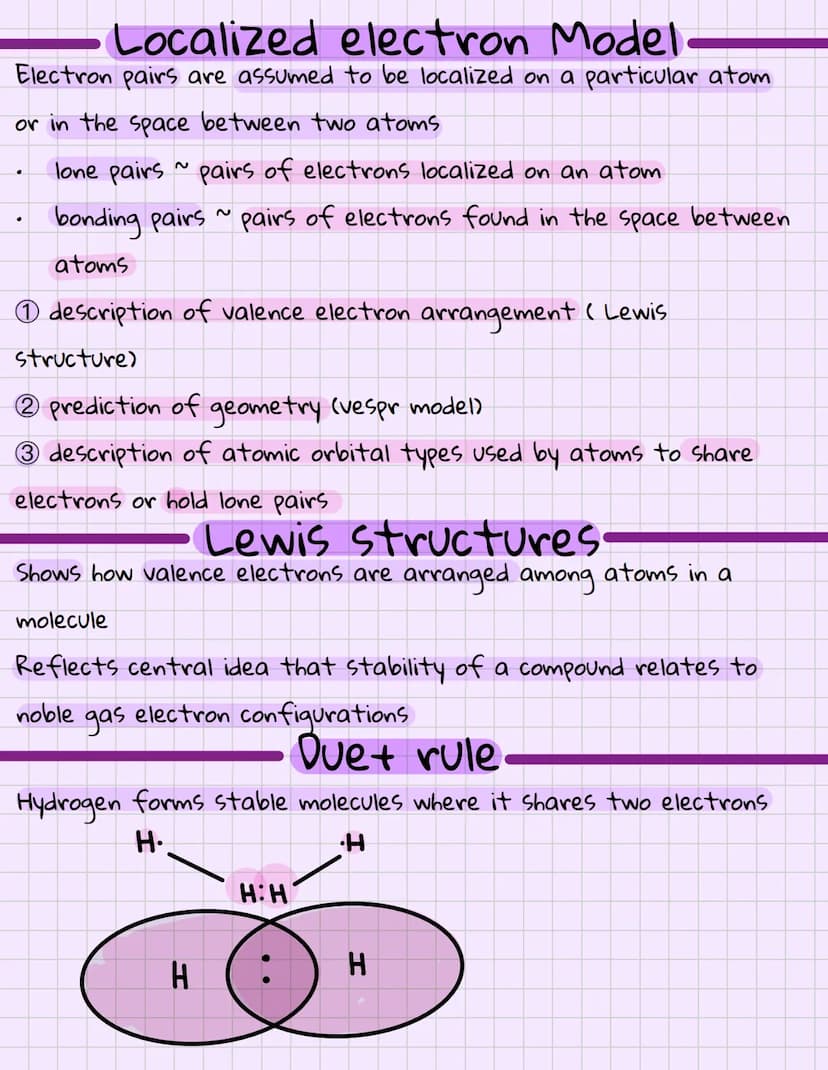 Localized electron Model
Electron pairs are assumed to be localized on a particular atom
or in the space between two atoms
· lone pairs ~ pairs of electrons localized on an atom
· bonding pairs ~ pairs of electrons found in the space between
atoms
① description of valence electron arrangement ( Lewis
structure)
② prediction of geometry (vespr model)
③ description of atomic orbital types used by atoms to share
electrons or hold lone pairs
Lewis structures
Shows how valence electrons are arranged among atoms in a
molecule
Reflects central idea that stability of a compound relates to
noble gas electron configurations
Duet rule
Hydrogen forms stable molecules where it shares two electrons
H· ·H
H:H
H : H